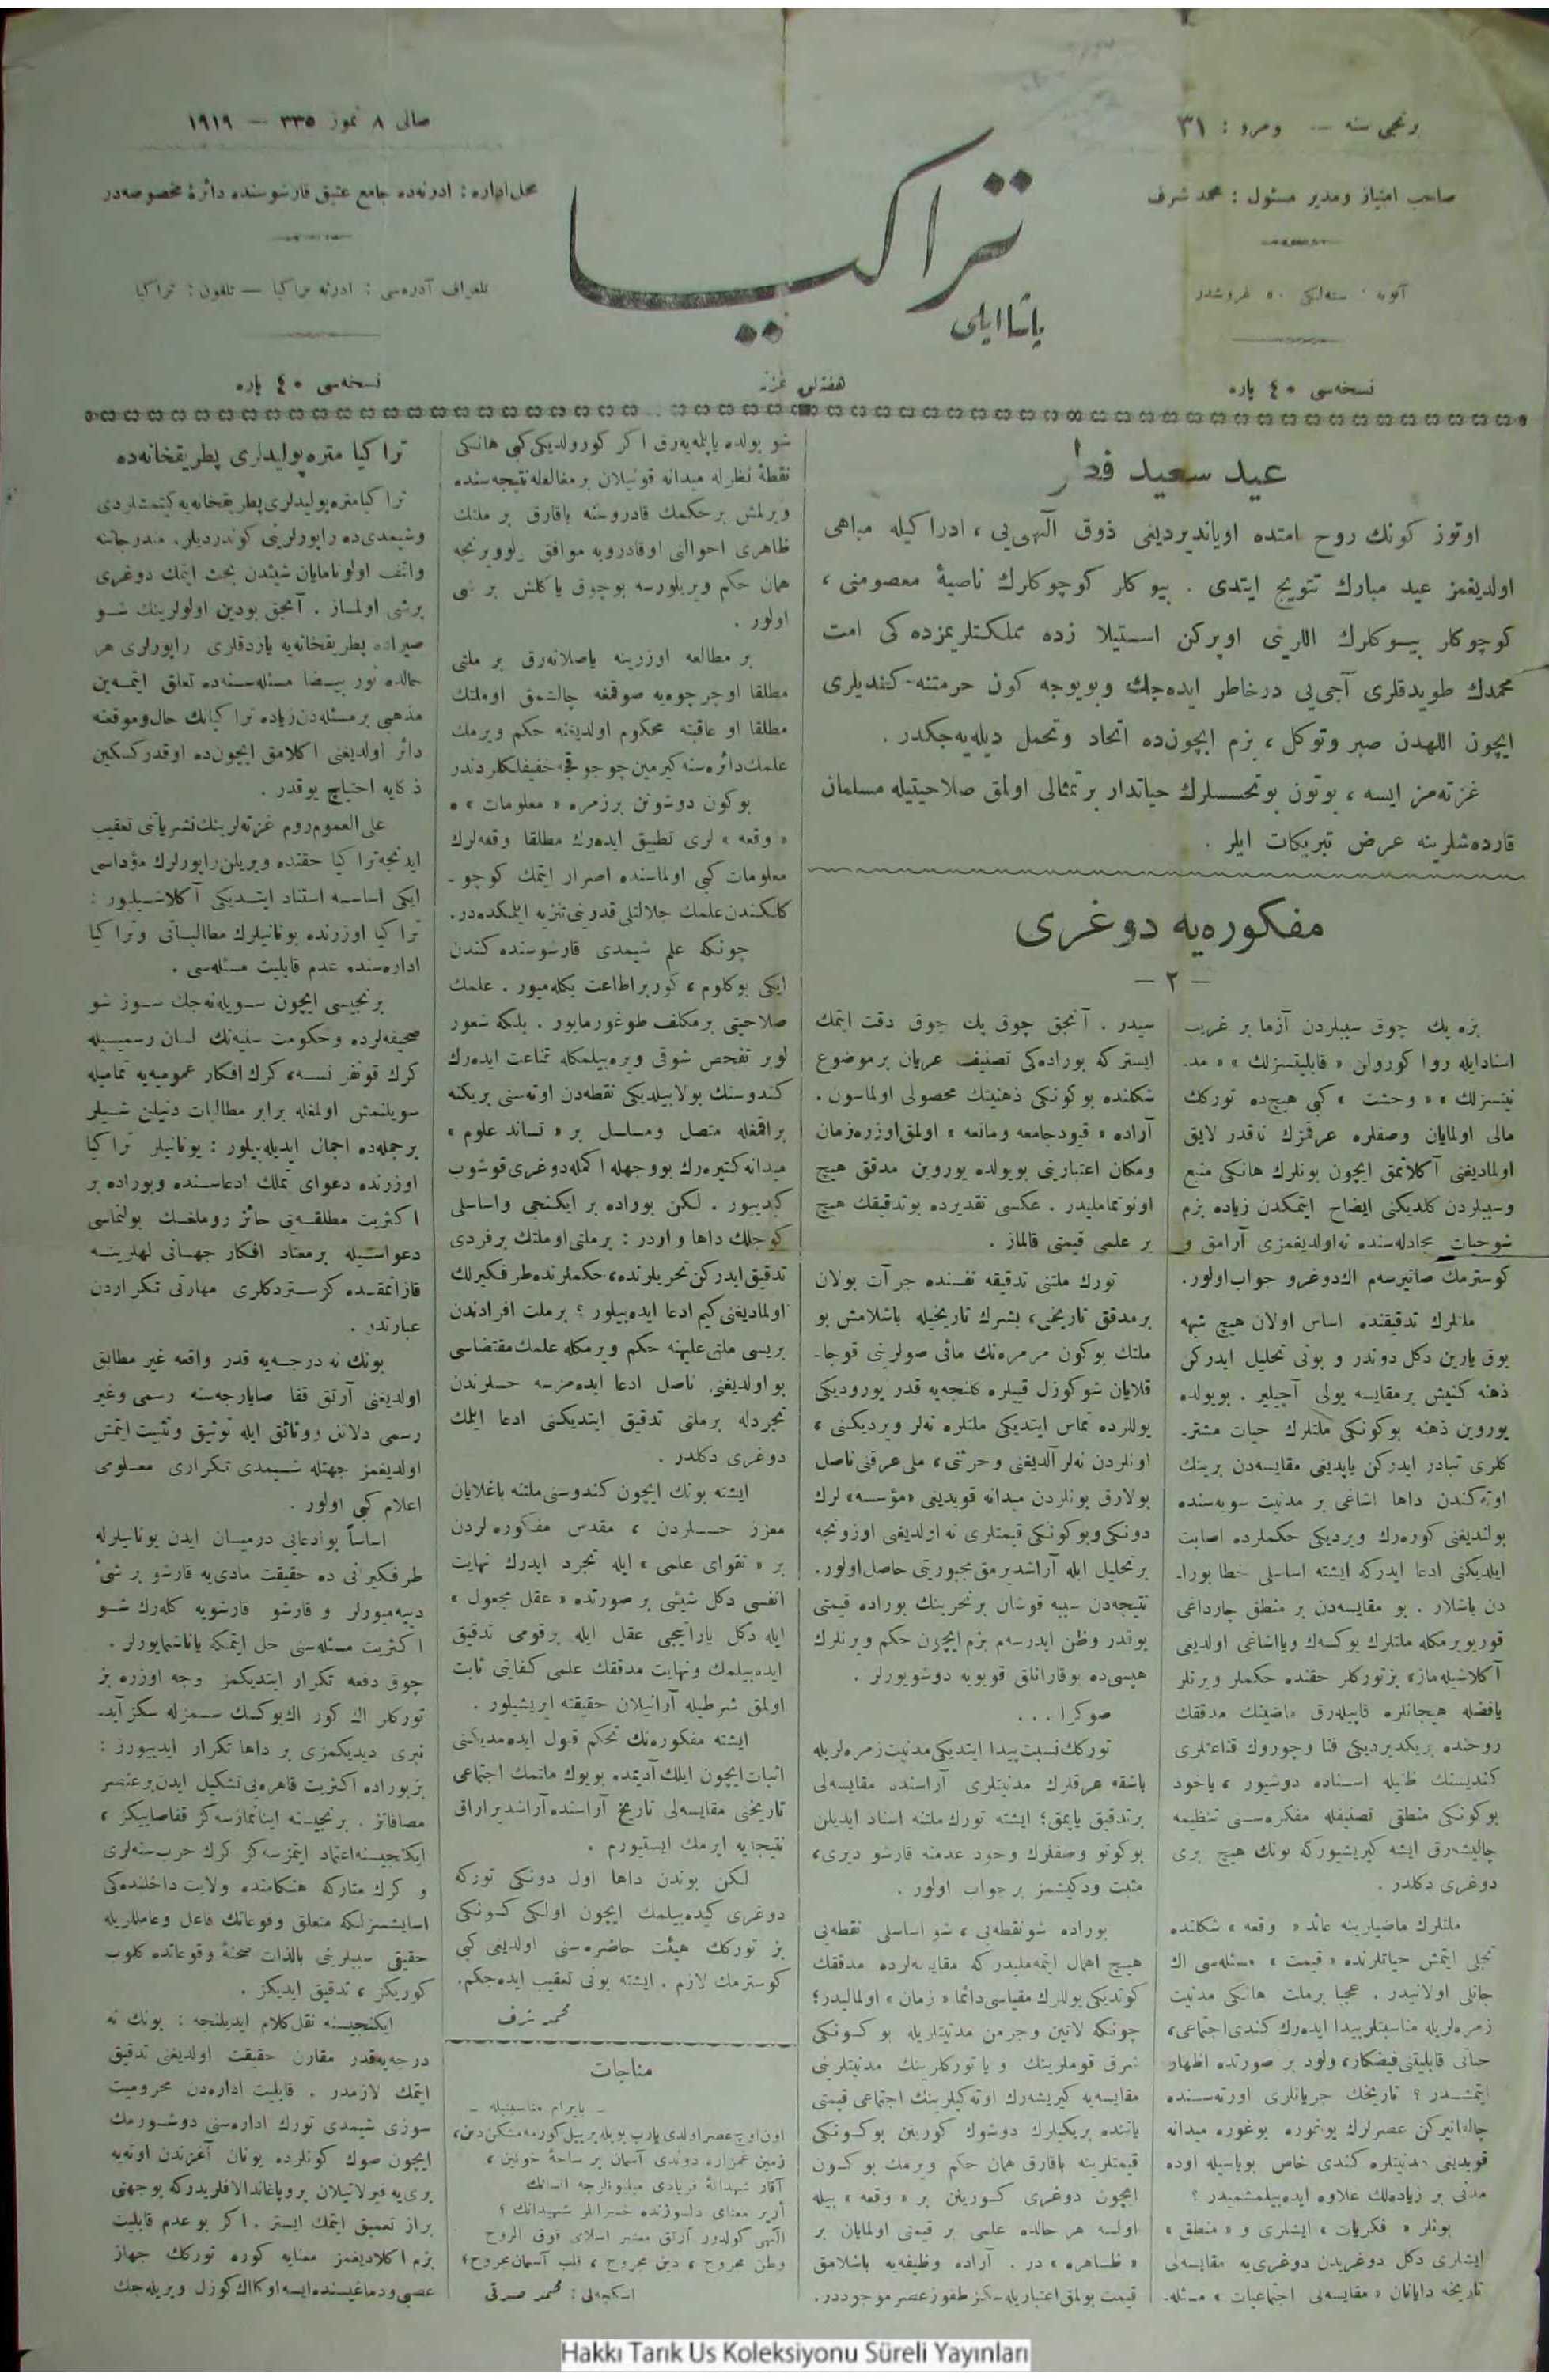 برنجی سنه — ومرو : ٣١
صاحب امتیاز ومدیر مسئول : محمد شرف
سنه‌لكی ٥٠ غروشدر
نسخه‌سی ٤٠ پاره
تراكیا
پاشا ایلی
هفته‌لق غزته
صالی ٨ تموز ٣٣٥ — ١٩١٩
محل اداره : ادرنه‌ده جامع عتیق قارشوسنده دائرۀ مخصوصه‌در
تلغراف آدره‌سی : ادرنه تراكیا — تلفون : تراكیا
نسخه‌سی ٤٠ پاره
عید سعید فطر
اوتوز كونك روح امتده اویاندیردیغی ذوق آلهی‌یی ، ادراكیله مباهی
اولدیغمز عید مبارك تتویج ایتدی . بیوكلر كوچوكلرك ناصیۀ معصومنی ،
كوچوكلر بیوكلرك اللرینی اوپركن استیلا زده مملكتلریمزده‌كی امت
محمدك طویدقلری آجی‌یی درخاطر ایده‌جك وبویوجه كون حرمتنه كندیلری
ایچون اللهدن صبر وتوكل ، بزم ایچون‌ده اتحاد وتحمل دیله‌یه‌جكدر .
غزته‌مز ایسه ، بوتون بوتحسسلرك حیاتدار برتمثالی اولمق صلاحیتیله مسلمان
قارده‌شلرینه عرض تبریكات ایلر .
مفكوره‌یه دوغری
— ٢ —
بزه پك چوق سببلردن آزما بر غریب
اسنادایله روا كورولن « قابلیتسزلك » « مد-
نیتسزلك » « وحشت » كبی هیچ‌ده توركك
مالی اولمایان وصفلره عرقمزك نه‌قدر لایق
اولمادیغنی آكلاتمق ایچون بونلرك هانكی منبع
وسببلردن كلدیكنی ایضاح ایتمكدن زیاده بزم
شوحیات مجادله‌سنده نه‌اولدیغمزی آرامق و
كوسترمك صانیرسه‌م اك‌دوغرو جواب‌اولور.
ملتلرك تدقیقنده اساس اولان هیچ شبهه
یوق یارین دكل دوندر و بونی تحلیل ایدركن
ذهنه كنیش برمقایسه یولی آچیلیر . بویولده
یوروین ذهنه بوكونكی ملتلرك حیات مشتر-
كلری تبادر ایدركن یاپدیغی مقایسه‌دن برینك
اوته‌كندن داها اشاغی بر مدنیت سویه‌سنده
بولندیغنی كوره‌رك ویردیكی حكملرده اصابت
ایلدیكنی ادعا ایدركه ایشته اساسلی خطا بورا-
دن باشلار . بو مقایسه‌دن بر منطق چارداغی
قوریویرمكله ملتلرك یوكسك ویااشاغی اولدیغی
آكلاشیله‌ماز، بزتوركلر حقنده حكملر ویرنلر
روحنده بریكدیردیكی فنا وچوروك قناعتلری
كندیسنك ظنیله اسناده دوشیور ، یاخود
بوكونكی منطقی تصنیفله مفكره‌سنی تنظیمه
چالیشه‌رق ایشه كیریشیوركه بونك هیچ بری
دوغری دكلدر .
ملتلرك ماضیلرینه عائد « وقعه » شكلنده
تجلی ایتمش حیاتلرنده « قیمت » مسئله‌سی اك
جانلی اولانیدر . عجبا برملت هانكی مدنیت
زمره‌لریله مناسبتلرپیدا ایده‌رك كندی‌اجتماعی،
حیاتی قابلیتنی فیضكار، ولود بر صورتده اظهار
ایتمشدر ؟ تاریخك جریانلری اورته‌سنده
قویدیغی مدنیتلره كندی خاص بویاسیله اوده
مدنی بر زیاده‌لك علاوه ایده‌بیلمشمیدر ؟
بونلر « فكریات » ایشلری و « منطق »
ایشلری دكل دوغریدن دوغری‌یه مقایسه‌لی
تاریخه دایانان « مقایسه‌لی اجتماعیات » مسئله-
سیدر . آنجق چوق پك چوق دقت ایتمك
ایستر كه بوراده‌كی تصنیف عریان برموضوع
شكلنده بوكونكی ذهنیتك محصولی اولماسون .
آراده « قیودجامعه ومانعه » اولمق‌اوزره‌زمان
ومكان اعتبارینی بویولده یوروین مدقق هیچ
اونوتمامالیدر . عكسی تقدیرده بوتدقیقك هیچ
بر علمی قیمتی قالماز .
تورك ملتنی تدقیقه نفسنده جرأت بولان
برمدقق تاریخی، بشرك تاریخیله باشلامش بو
ملتك بوكون مرمره‌نك مائی صولرینی قوجا-
قلایان شوكوزل قییلره كلنجه‌یه قدر یورودیكی
یوللرده تماس ایتدیكی ملتلره نه‌لر ویردیكنی ،
اونلردن نه‌لر آلدیغنی وحرثنی، ملی‌عرقنی‌ناصل
بولارق بونلردن میدانه قویدیغی «مؤسسه» لرك
دونكی‌وبوكونكی قیمتلری نه اولدیغنی اوزونجه
برتحلیل ایله آراشدیرمق‌مجبوریتی حاصل‌اولور.
نتیجه‌دن سببه قوشان برتحرینك بوراده قیمتی
یوقدر وظن ایدرسه‌م بزم ایچون حكم ویرنلرك
هپسی‌ده بوقارانلق قویویه دوشویورلر .
صوكرا . . .
توركك‌نسبت‌پیدا ایتدیكی‌مدنیت‌زمره‌لریله
باشقه عرقلرك مدنیتلری آراسنده مقایسه‌لی
برتدقیق یاپمق؛ ایشته تورك ملتنه اسناد ایدیلن
بوكوتو وصفلرك وجود عدمنه قارشو دیری،
مثبت ودكیشمز برجواب اولور .
بوراده شونقطه‌یی ، شو اساسلی نقطه‌یی
هیچ اهمال ایتمه‌ملیدر كه مقایسه‌لرده مدققك
كوتدیكی یوللرك مقیاسی‌دائما « زمان » اولمالیدر؛
چونكه لاتین وجرمن مدنیتلریله بوكونكی
شرق قوملرینك و یا توركلرینك مدنیتلرینی
مقایسه‌یه كیریشه‌رك اوته‌كیلرینك اجتماعی قیمتی
یاننده بریكیلرك دوشوك كورینن بوكونكی
قیمتلرینه باقارق همان حكم ویرمك بوكون
ایچون دوغری كورینن بر « وقعه » بیله
اولسه هر حالده علمی بر قیمتی اولمایان بر
« ظاهره » در . آراده وظیفه‌یه باشلامق
قیمت بولمق‌اعتباریله‌سكز طقوزعصرموجوددر.
شو یولده یاپیلمه‌یه‌رق اكر كورولدیكی‌كبی هانكی
نقطۀ نظرله میدانه قونیلان برمغالطه‌نتیجه‌سنده
ویرلمش برحكمك قادروسنه باقارق بر ملتك
ظاهری احوالنی اوقادرویه موافق
همان حكم ویریلورسه بوچوق یاكلش بر شی
اولور .
بر مطالعه اوزرینه یاصلانه‌رق بر ملتی
مطلقا اوچرچوه‌یه صوقمغه چالشمق اوملتك
مطلقا او عاقبته محكوم اولدیغنه حكم ویرمك
علمك‌دائره‌سنه كیرمه‌ین چوجوقجه خفیفلكلردندر
بوكون دوشونن برزمره « معلومات » ه
« وقعه » لری تطبیق ایده‌رك مطلقا وقعه‌لرك
معلومات كبی اولماسنده اصرار ایتمك كوچو-
كلكندن علمك جلالتلی قدرینی تنزیه ایلمكده‌در.
چونكه علم شیمدی قارشوسنده كندن
ایكی بوكلوم ، كوربراطاعت بكله‌میور . علمك
صلاحیتی برمكلف طوغورمایور . بلكه شعور
لوبر تفحص شوقی ویره‌بیلمكله قناعت ایده‌رك
كندوسنك بولابیلدیكی نقطه‌دن اوته‌سنی بریكنه
براقمغله متصل ومسلسل بر « تساند علوم »
میدانه كتیره‌رك بووجهله اكمله‌دوغری‌قوشوب
كیدییور . لكن بوراده بر ایكنجی واساسلی
كوجلك داها واردر : برملتی اوملتك برفردی
تدقیق ایدركن تحریلرنده، حكملرنده طرفكیرلك
اولمادیغنی كیم ادعا ایده‌بیلور ؟ برملت افرادندن
بریسی ملتی علیهنه حكم ویرمكله علمك‌مقتضاسی
بو اولدیغنی ناصل ادعا ایده‌مزسه حسلرندن
تجردله برملتی تدقیق ایتدیكنی ادعا ایلمك
دوغری دكلدر .
ایشته بونك ایچون كندوسنی ملتنه باغلایان
معزز حسلردن ، مقدس مفكوره‌لردن
بر « تقوای علمی » ایله تجرد ایدرك نهایت
انفسی دكل شیئی بر صورتده « عقل مجعول »
ایله دكل یاراتیجی عقل ایله برقومی تدقیق
ایده‌بیلمك ونهایت مدققك علمی كفایتی ثابت
اولمق شرطیله آرانیلان حقیقته ایریشیلور .
ایشته مفكوره‌نك تحكم قبول ایده‌مدیكنی
اثبات ایچون ایلك آدیمده بویوك ملتمك اجتماعی
تاریخنی مقایسه‌لی تاریخ آراسنده آراشدیراراق
نتیجه‌یه ایرمك ایستیورم .
لكن بوندن داها اول دونكی توركه
دوغری كیده‌بیلمك ایچون اولكی كونكی
بز توركك هیئت حاضره‌سنی اولدیغی كبی
كوسترمك لازم . ایشته بونی تعقیب ایده‌جكم.
محمد شرف
مناجات
— بایرام مناسبتیله —
اون‌اوچ عصراولدی یارب بویله‌بر
زمین غمزاره دوندی آسمان بر ساحۀ خونین ،
آقار شهدانۀ فریادی میلیونلرجه انسانك
وطن مجروح ، دین مجروح ، قلب آسمان‌مجروح؛
اسكیجه‌لی : محمد صدقی
تراكیا متره‌پولیدلری پطریقخانه‌ده
تراكیا متره‌پولیدلری پطریقخانه‌یه كیتمشلردی
وشیمدی‌ده راپورلرینی كوندردیلر. مندرجاتنه
واقف اولونامایان شیئدن بحث ایتمك دوغری
برشی اولماز . آنجق بودین اولولرینك شو
صیراده پطریقخانه‌یه یازدقلری راپورلری هر
حالده نور بیضا مسئله‌سنه‌ده تعلق ایتمه‌ین
مذهبی برمسئله‌دن‌زیاده تراكیانك حال‌وموقعنه
دائر اولدیغنی اكلامق ایچون‌ده اوقدركسكین
ذكایه احتیاج یوقدر .
علی العموم روم غزته‌لرینك نشریاتنی تعقیب
ایدنجه‌تراكیا حقنده ویریلن‌راپورلرك مؤداسی
ایكی اساسه استناد ایتدیكی آكلاشیلیور :
تراكیا اوزرنده یونانیلرك مطالباتی وتراكیا
اداره‌سنده عدم قابلیت مسئله‌سی .
برنجیسی ایچون سویله‌نه‌جك سوز شو
صحیفه‌لرده وحكومت سنیه‌نك لسان رسمیسیله
كرك قونفرنسه، كرك افكار عمومیه‌یه تمامیله
سویلنمش اولمغله برابر مطالبات دنیلن شیلر
برجمله‌ده اجمال ایدیله‌بیلور : یونانیلر تراكیا
اوزرنده دعوای تملك ادعاسنده وبوراده بر
اكثریت مطلقه‌یی حائز روملغك بولنماسی
دعواسیله برمعتاد افكار جهانی لهلرینه
قازانمقده كوستردكلری مهارتی تكراردن
عبارتدر .
بونك نه درجه‌یه قدر واقعه غیر مطابق
اولدیغنی آرتق قفا صایارجه‌سنه رسمی وغیر
رسمی دلائل ووثائق ایله توثیق وتثبیت ایتمش
اولدیغمز جهتله شیمدی تكراری معلومی
اعلام كبی اولور .
اساساً بوادعایی درمیان ایدن یونانیلرله
طرفكیرانی ده حقیقت مادی‌یه قارشو برشی
دییه‌میورلر و قارشو قارشویه كله‌رك شو
اكثریت مسئله‌سنی حل ایتمكه یاناشمایورلر .
چوق دفعه تكرار ایتدیكمز وجه اوزره بز
توركلر اك كور اك‌یوكسك سسمزله سكز آیدـ
نبری دیدیكمزی بر داها تكرار ایدییورز :
بزبوراده اكثریت قاهره‌یی تشكیل ایدن‌برعنصر
مصافاتز . برنجیسنه اینانمازسه‌كز قفاصاییكز ،
ایكنجیسنه‌اعتماد ایتمزسه‌كز كرك حرب‌سنه‌لری
و كرك متاركه هنكامنده ولایت داخلنده‌كی
اسایشسزلكه متعلق وقوعاتك فاعل وعاملریله
حقیقی سببلرینی بالذات صحنۀ وقوعاتده كلوب
كوریكز ، تدقیق ایدیكز .
ایكنجیسنه نقل‌كلام ایدیلنجه : بونك نه
درجه‌یه‌قدر مقارن حقیقت اولدیغنی تدقیق
ایتمك لازمدر . قابلیت اداره‌دن محرومیت
سوزی شیمدی تورك اداره‌سنی دوشورمك
ایچون صوك كونلرده یونان آغزندن اوته‌یه
بری‌یه فیرلاتیلان پروپاغاندالافلریدركه بوجهتی
براز تعمیق ایتمك ایستر . اكر بوعدم قابلیت
بزم اكلادیغمز معنایه كوره توركك جهاز
عصبی‌ودماغیسنده‌ایسه اوكااك‌كوزل ویریله‌جك
Hakkı Tarık Us Koleksiyonu Süreli Yayınları